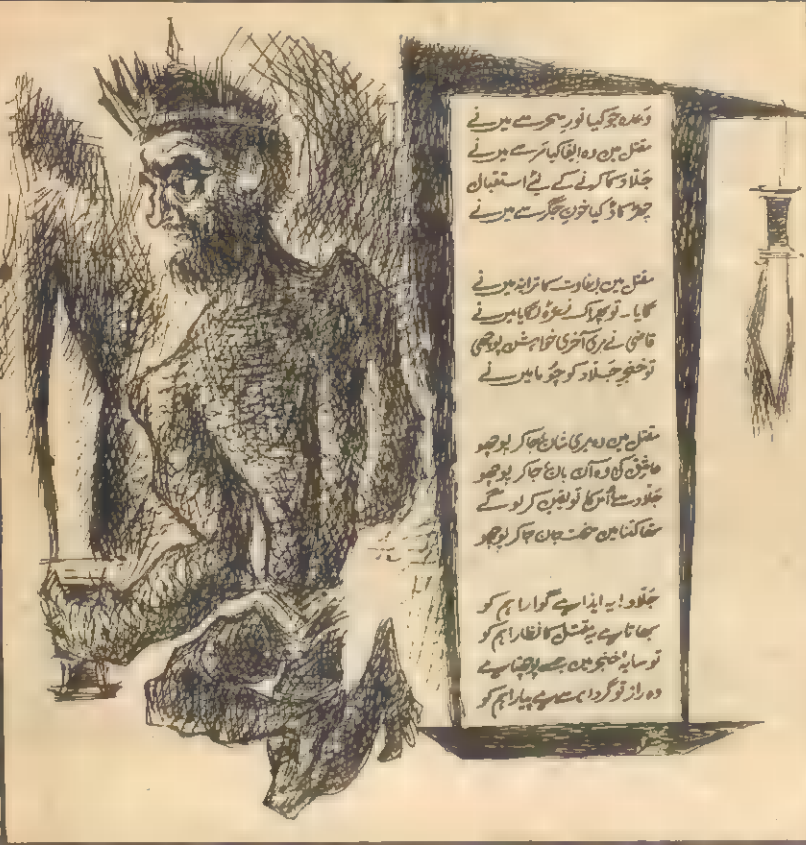 وعدہ جو کیا نورِ سحر سے میں نے
مقتل میں وہ ایفا کیا سر سے میں نے
جلّاد کا کرنے کے لئے استقبال
چھڑکاؤ کیا خونِ جگر سے میں نے
مقتل میں بغاوت کا ترانہ میں نے
گایا۔ تو بھڑک کے نعرہ لگایا میں نے
قاضی نے مری آخری خواہش پوچھی
تو خنجرِ جلّاد کو چوما میں نے
مقتل میں وہ میری شان جا کر پوچھو
عاشق کی وہ آن بان جا کر پوچھو
جلّاد سے اُس کا تو یقین کر لو گے
تھا کتنا میں سخت جان جا کر پوچھو
جلّاد! یہ ایذا ہے گوارا ہم کو
بھاتا ہے یہ مقتل کا نظارا ہم کو
تو سایۂ خنجر میں جسے پوچھتا ہے
وہ راز تو گردن سے ہے پیارا ہم کو